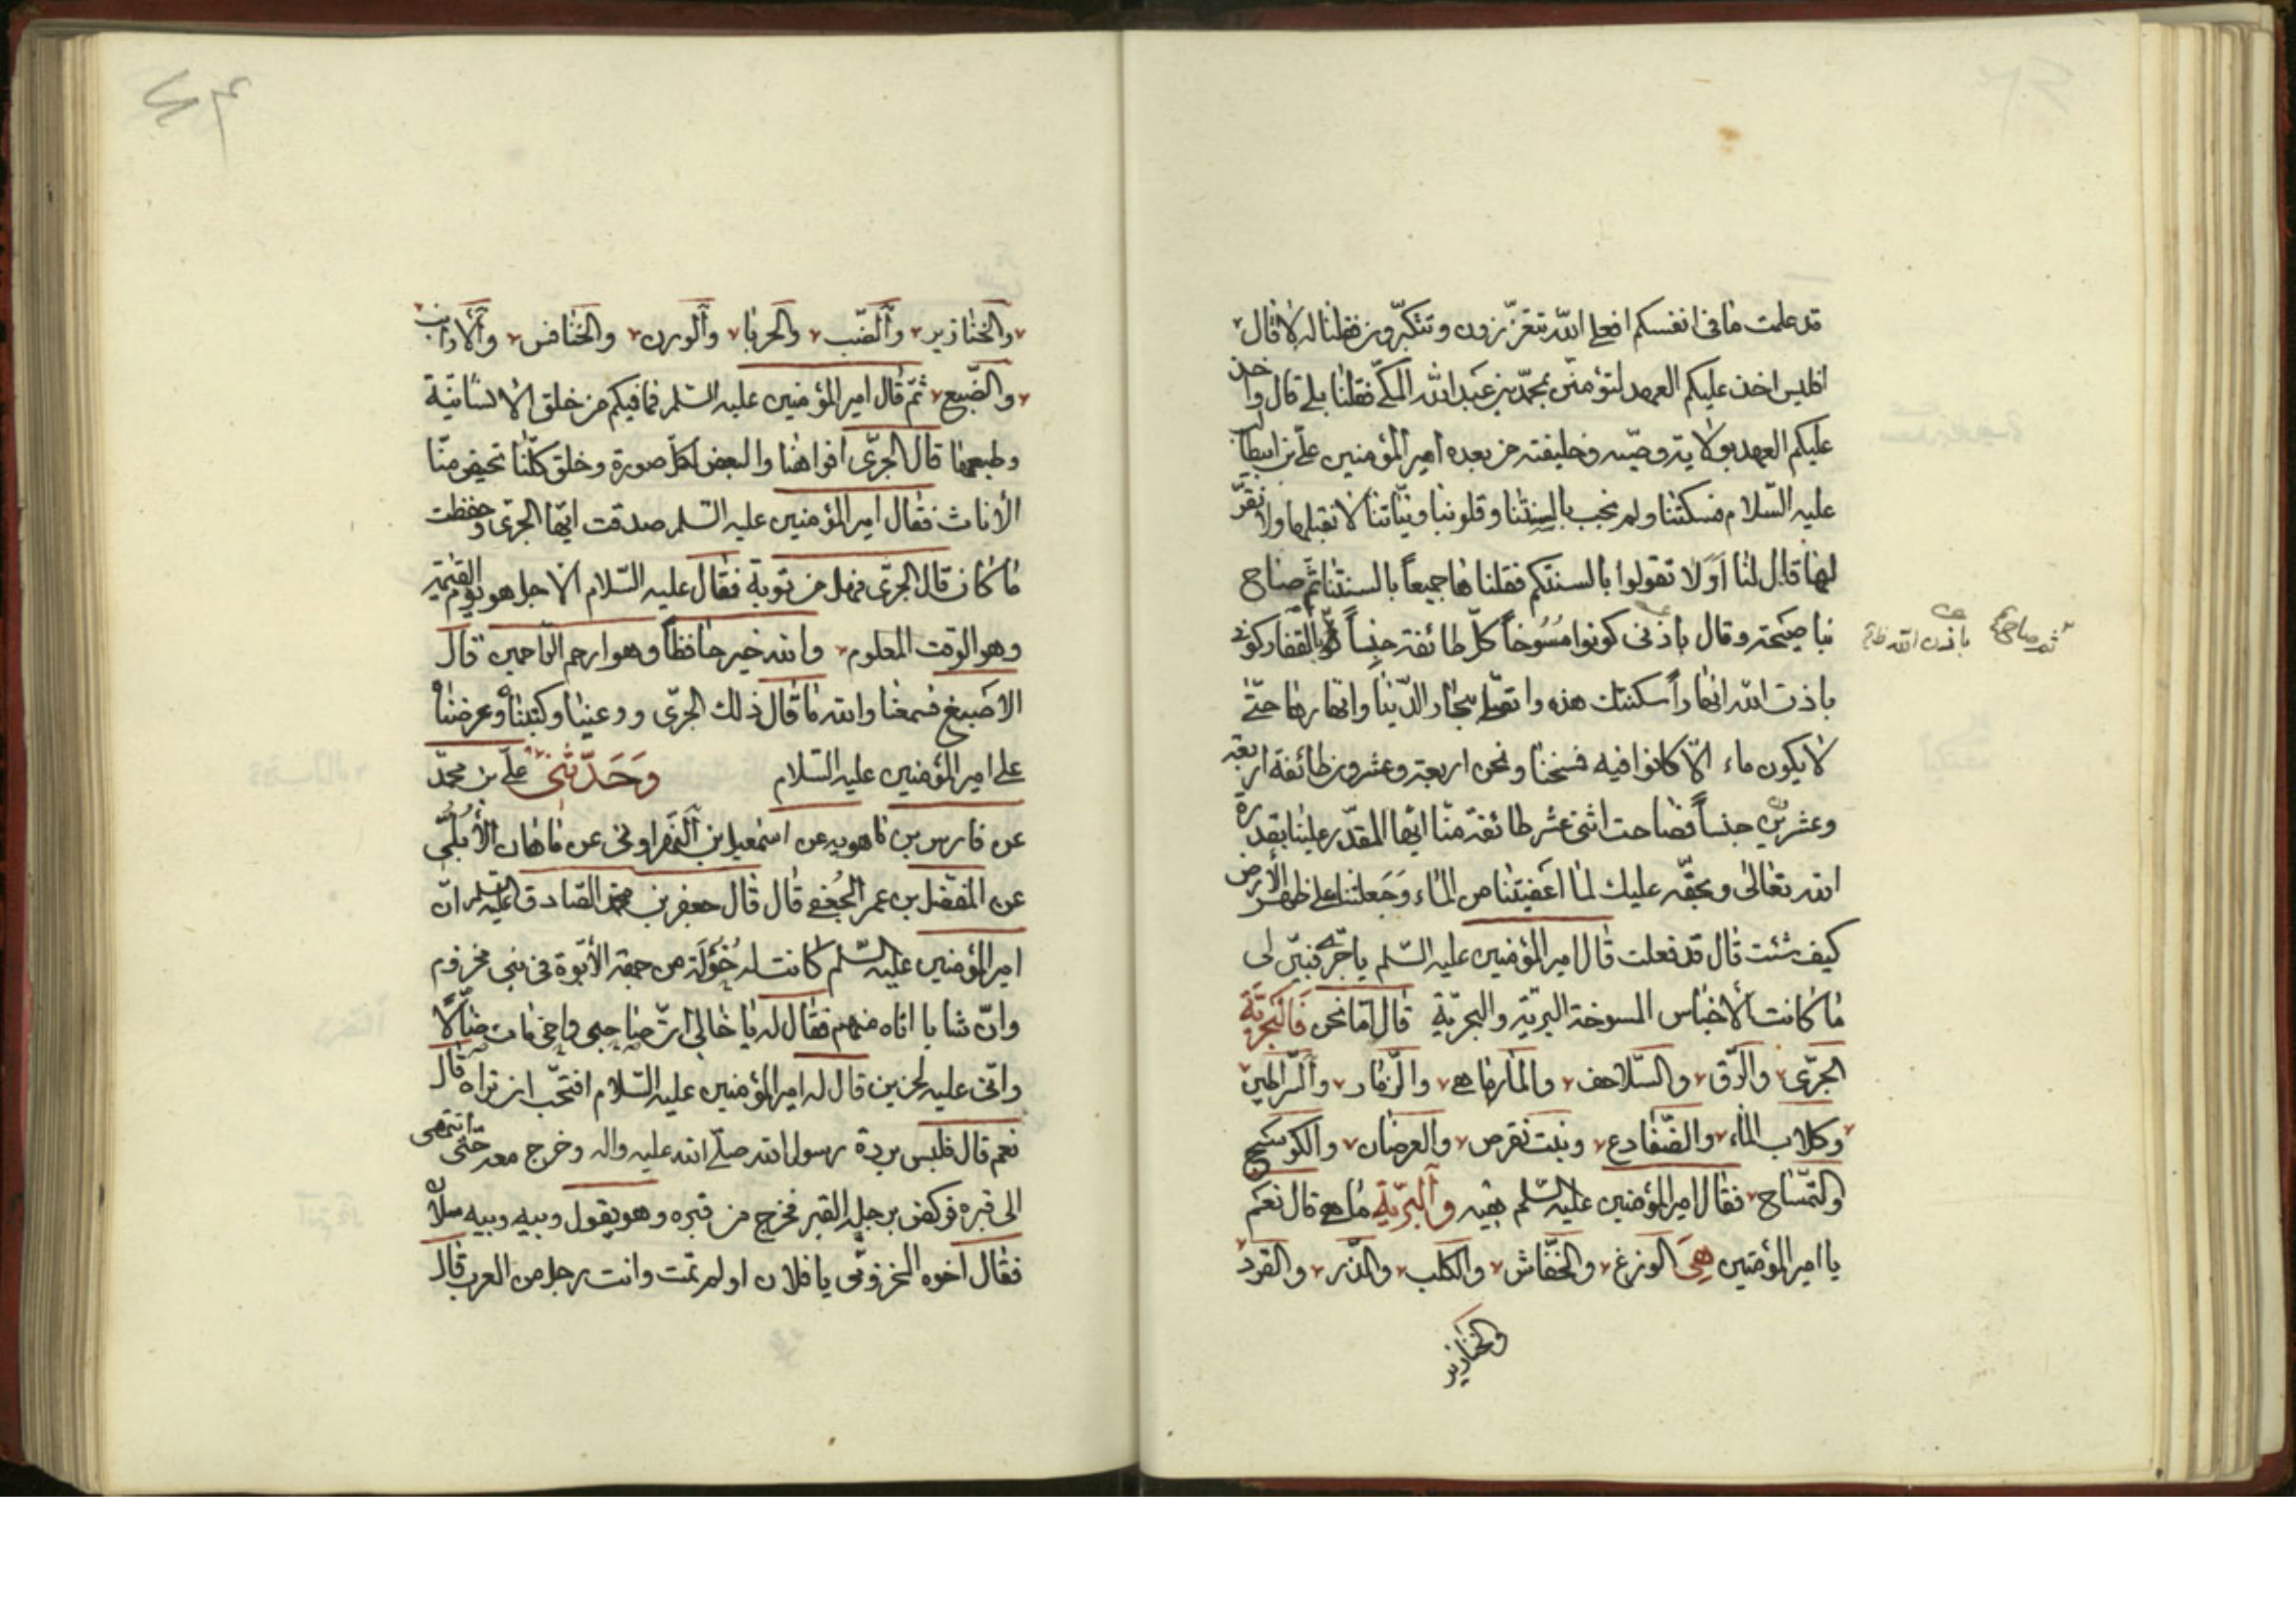 قد علمت ما فى انفسكم افعلى الله تتعززون وتتكبّرون فقلنا له لا قال
افليس اخذ عليكم العهد لتؤمننّ بمحمّد بن عبد الله المكّى فقلنا بلى قال واخذ
عليكم العهد بولاية وصيّه وخليفته من بعده امير المؤمنين علىّ بن ابيطالب
عليه السّلام فسكتنا ولم نجب بالسنتنا وقلوبنا ونيّاتنا لا نقبلها ولا نقرّ
لها قال لنا اَوَلا تقولوا بالسنتكم فقلناها جميعاً بالسنتنا ثمّ صاح
بنا صيحة وقال باذنى كونوا مُسُوخاً كلّ طائفة جنساً بالقفار كونى
باذن الله انهاراً سكنتك هذه واتصلى ببحار الدّنيا وانهارها حتّى
لا يكون ماء الّا كانوا فيه فمسخنا ونحن اربعة وعشرون طائفة اربعة
وعشرين جنساً فصاحت اثنى عشر طائفة منّا ايّها المقدّر علينا بقدرة
الله تعالى وبحقّه عليك لما اعفيتنا من الماء وَجَعلتنا على ظهر الأرض
كيف شئت قال قد فعلت قال امير المؤمنين عليه السّلم يا جرّى فبيّن لى
ما كانت الأجناس المسوخة البريّة والبحريّة قال امّا نحن فَالْبَحْرِيَّة
الجرّى والرّق والسّلاحف والمارماهى والزّمّار والسّراطين
وكلاب الماء والضّفادع وبنت نقرص والعرضان والكوسج
والتمّساح فقال امير المؤمنين عليه السّلم هيه والبرّيّة ما هى قال نعم
يا امير المؤمنين هِىَ الوزغ والخفّاش والكلب والدّر والقرد
والخنازير
ثم صاح
باذن الله
والخنازير والضّب والحربا والورن والخنافس والأرانب
والضّبع ثمّ قال امير المؤمنين عليه السّلم فما فيكم من خلق الانسانيّة
وطبعها قال الجرّى افواهنا والبعض لكلّ صورة وخلق كلّنا تحيض منّا
الأناث فقال امير المؤمنين عليه السّلم صدقت ايّها الجرّى وحفظت
ما كان قال الجرّى فهل من توبة فقال عليه السّلام الاجل هو يوم القيمة
وهو الوقت المعلوم والله خير حافظاً وهو ارحم الرّاحمين قال
الاصبغ فسمعنا والله ما قال ذلك الجرّى ووعيناه وكتبناه وعرضناه
على امير المؤمنين عليه السّلام وَحَدَّثَنى علىّ بن محمّد
عن فارس بن ماهويه عن اسمعيل بن النهراونى عن ماهان الأُبُلّى
عن المفضّل بن عمر الجُعفى قال قال جعفر بن محمّد الصّادق عليه السّلم انّ
امير المؤمنين عليه السّلم كانت له خُؤلَة من جهة الأبوّة فى بنى مخزوم
وانّ شابا اتاه منهم فقال له يا خالى انّ صاحبى واخى مات ضالّا
وانّى عليه لحزين قال له امير المؤمنين عليه السّلام افتحّب ان تراه قال
نعم قال فلبس بردة رسول الله صلّى الله عليه واله وخرج معه حتّى انتهى
الى قبره فركض برجله القبر فخرج من قبره وهو يقول وبيه وبيه سلاً
فقال اخوه المخزومى يا فلان اولم تمت وانت رجل من العرب قال